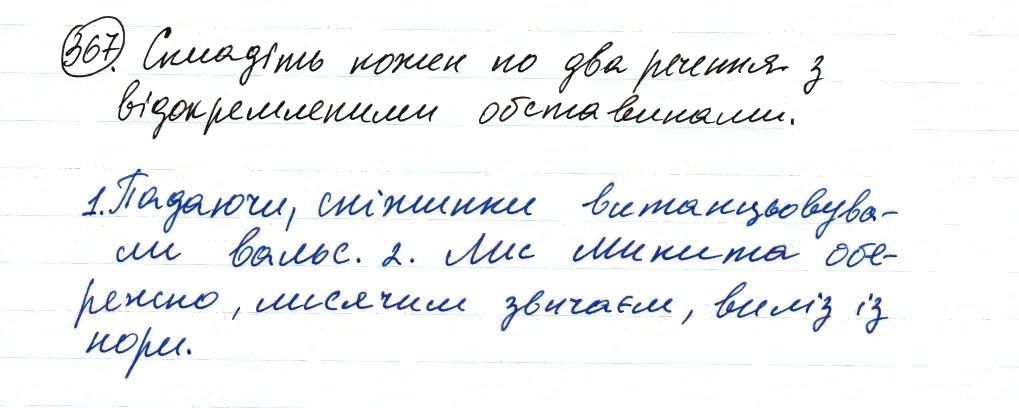 367. Складіть кожен по два речення з
відокремленими обставинами.
1. Падаючи, сніжинки витанцьовува-
ли вальс. 2. Лис Микита обе-
режно, лисячим звичаєм, виліз із
нори.